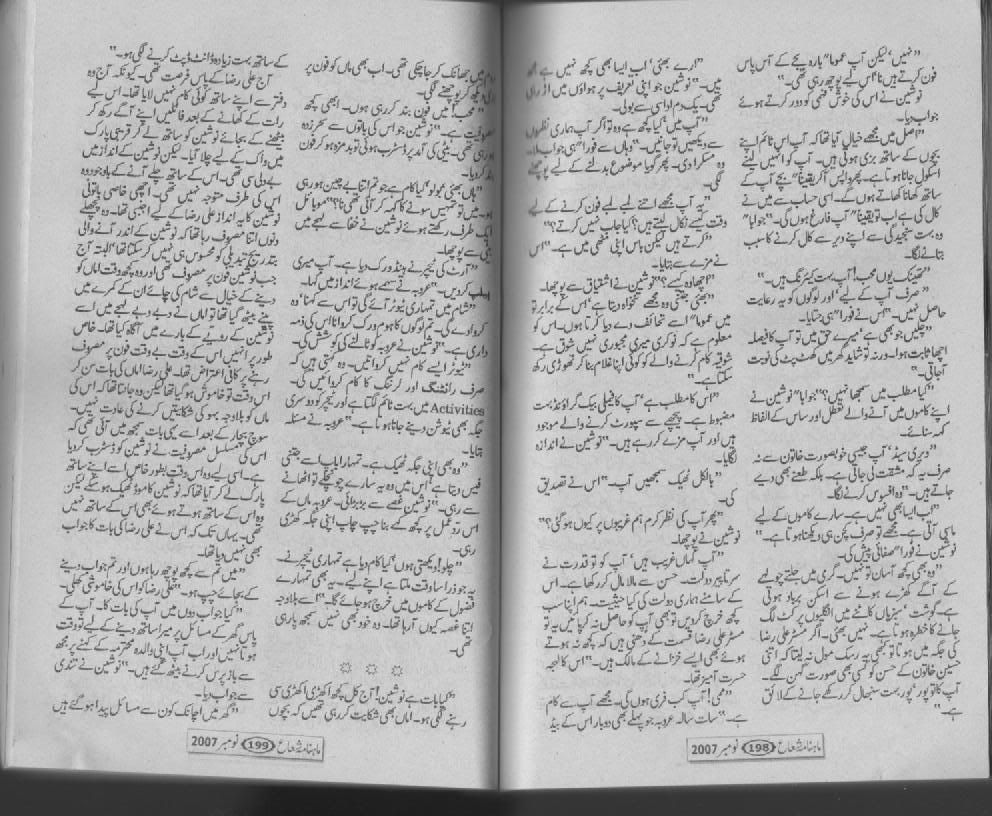 "نہیں' لیکن آپ عموماً" بارہ بجے کے آس پاس
فون کرتے ہیں نا' اس لیے پوچھ رہی تھی۔"
نوشین نے اس کی خوش فہمی کو دور کرتے ہوئے
جواب دیا۔
"اصل میں مجھے خیال آیا تھا کہ آپ اس ٹائم اپنے
بچوں کے ساتھ بزی ہوتی ہیں۔ آپ کو انہیں لینے
اسکول جانا ہوتا ہے۔ پھر واپس آکر یقیناً" بچے آپ کے
ساتھ کھانا کھاتے ہوں گے۔ اسی حساب سے میں نے
کال کی ہے اب تو یقیناً" آپ فارغ ہوں گی۔" جواباً"
وہ بہت سنجیدگی سے اپنے دیر سے کال کرنے کا سبب
بتانے لگا۔
"تھینک یوں محب! آپ بہت کیئرنگ ہیں۔"
"صرف آپ کے لیے' اور لوگوں کو یہ رعایت
حاصل نہیں۔" اس نے فوراً" ہی جتایا۔
"چلیں جو بھی ہے' میرے حق میں تو آپ کا فیصلہ
اچھا ثابت ہوا۔ ورنہ تو شاید گھر میں کھٹ پٹ کی نوبت
آجاتی۔"
"کیا مطلب میں سمجھا نہیں؟" جواباً" نوشین نے
اپنے کاموں میں آنے والے تعطل اور ساس کے الفاظ
کہہ سنائے۔
"ویری سیڈ' آپ جیسی خوبصورت خاتون سے نہ
صرف یہ کہ مشقت لی جاتی ہے۔ بلکہ طعنے بھی دیے
جاتے ہیں۔" وہ افسوس کرنے لگا۔
"اب ایسا بھی نہیں ہے۔ سارے کاموں کے لیے
ماسی آتی ہے۔ مجھے تو صرف کچن ہی دیکھنا ہوتا ہے۔"
نوشین نے فوراً" صفائی پیش کی۔
"وہ بھی کچھ آسان تو نہیں۔ گرمی میں جلتے چولہے
کے آگے کھڑے ہونے سے اسکن برباد ہوتی
ہے۔ گوشت' سبزیاں کاٹنے میں انگلیوں پر کٹ لگ
جانے کا خطرہ ہوتا ہے۔ نہیں بھئی۔ اگر مسٹر علی رضا
کی جگہ میں ہوتا تو کبھی یہ رسک مول نہ لیتا کہ اتنی
حسین خاتون کے حسن کو کسی بھی صورت گہن لگے۔
آپ کا تو پور' پور بہت سنبھال کر رکھے جانے کے لائق
ہے۔"
"ارے بھئی' اب ایسا بھی کچھ نہیں ہے
ہیں۔" نوشین جو اپنی تعریف پر ہواؤں میں اڑ رہی
تھی۔ یک دم اداسی سے بولی۔
"آپ میں' کیا کچھ ہے وہ تو اگر آپ ہماری نظروں
سے دیکھیں تو جانیں۔" وہاں سے فوراً" ہی جواب ملا۔
وہ مسکرا دی۔ پھر گویا موضوع بدلنے کے لیے پوچھنے
لگی۔
"یہ آپ مجھے اتنے لمبے لمبے فون کرنے کے لیے
وقت کیسے نکال لیتے ہیں؟ کیا جاب نہیں کرتے؟"
"کرتے ہیں لیکن باس اپنی مٹھی میں ہے۔" اس
نے مزے سے بتایا۔
"اچھا وہ کیسے؟" نوشین نے اشتیاق سے پوچھا۔
"بھئی جتنی وہ مجھے تنخواہ دیتا ہے' اس کے برابر تو
میں عموماً" اسے تحائف دے دیا کرتا ہوں۔ اس کو
معلوم ہے کہ نوکری میری مجبوری نہیں شوق ہے۔
شوقیہ کام کرنے والے کو کوئی اپنا غلام بنا کر تھوڑی رکھ
سکتا ہے۔"
"اس کا مطلب ہے' آپ کا فیملی بیک گراؤنڈ بہت
مضبوط ہے۔ پیچھے سے سپورٹ کرنے والے موجود
ہیں اور آپ مزے کر رہے ہیں۔" نوشین نے اندازہ
لگایا۔
"بالکل ٹھیک سمجھیں آپ۔" اس نے تصدیق
کی۔
"پھر آپ کی نظر کرم ہم غریبوں پر کیوں ہو گئی؟"
نوشین نے پوچھا۔
"آپ کہاں غریب ہیں' آپ کو تو قدرت نے
سرتاپیر دولت۔ حسن سے مالا مال کر رکھا ہے۔ اس
کے سامنے ہماری دولت کی کیا حیثیت۔ ہم اپنا سب
کچھ خرچ کر دیں تو بھی آپ کو حاصل نہ کر پائیں یہ تو
مسٹر علی رضا قسمت کے دھنی ہیں کہ کچھ نہ ہوتے
ہوئے بھی ایسے خزانے کے مالک ہیں۔" اس کا لہجہ
حسرت آمیز تھا۔
"ممی! آپ کب فری ہوں گی۔ مجھے آپ سے کام
ہے۔" سات سالہ عروبہ جو پہلے بھی دوبار اس کے بیڈ
ماہنامہ شعاع 198 نومبر 2007
میں جھانک کر جا چکی تھی۔ اب بھی ماں کو فون پر
دیکھ کر پوچھنے لگی۔
"محب! میں فون بند کر رہی ہوں۔ ابھی کچھ
مصروفیت ہے۔" نوشین جو اس کی باتوں سے سحر زدہ
ہو رہی تھی۔ بیٹی کی آمد پر ڈسٹرب ہوئی تو بدمزہ ہو کر فون
بند کر دیا۔
"ہاں بھئی بولو' کیا کام ہے جو تم اتنا بے چین ہو رہی
ہو۔ میں تو تمہیں سونے کا کہہ کر آئی تھی نا؟" موبائل
ایک طرف رکھتے ہوئے نوشین نے خفا سے لہجے میں
بیٹی سے پوچھا۔
"آرٹ کی ٹیچر نے ہینڈ ورک دیا ہے۔ آپ میری
ہیلپ کر دیں۔" عروبہ نے سہمے ہوئے انداز میں کہا۔
"شام میں تمہاری ٹیوٹر آئے گی تو اس سے کہنا' وہ
کروادے گی۔ تم لوگوں کا ہوم ورک کروانا اس کی ذمہ
داری ہے۔" نوشین نے عروبہ کو ٹالنے کی کوشش کی۔
"ٹیوٹر ایسے کام نہیں کرواتیں۔ وہ کہتی ہیں کہ
صرف رائٹنگ اور لرننگ کا کام کروائیں گی۔
Activities میں بہت ٹائم لگتا ہے اور ٹیچر کو دوسری
جگہ بھی ٹیوشن دینے جانا ہوتا ہے۔" عروبہ نے مسئلہ
بتایا۔
"وہ بھی اپنی جگہ ٹھیک ہے۔ تمہارا باپ اسے جتنی
فیس دیتا ہے' اس میں وہ یہ سارے چونچلے تو اٹھانے
سے رہی۔" نوشین غصے سے بڑبڑائی۔ عروبہ ماں کے
اس رد عمل پر کچھ کہے بنا چپ چاپ اپنی جگہ کھڑی
رہی۔
"چلو! دیکھتی ہوں' کیا کام دیا ہے تمہاری ٹیچر نے۔
یہ جو ذرا سا وقت ملتا ہے اپنے لیے۔ یہ بھی تمہارے
فضول کے کاموں میں خرچ ہو جائے گا۔" اسے بلاوجہ
اتنا غصہ کیوں آرہا تھا۔ وہ خود بھی نہیں سمجھ پا رہی
تھی۔
☼ ☼ ☼
"کیا بات ہے نوشین! آج کل کچھ اکھڑی اکھڑی سی
رہنے لگی ہو۔ اماں بھی شکایت کر رہی تھیں کہ بچوں
کے ساتھ بہت زیادہ ڈانٹ ڈپٹ کرنے لگی ہو۔"
آج علی رضا کے پاس فرصت تھی۔ کیونکہ آج وہ
دفتر سے اپنے ساتھ کوئی کام نہیں لایا تھا۔ اس لیے
رات کے کھانے کے بعد فائلیں اپنے آگے رکھ کر
بیٹھنے کے بجائے نوشین کو ساتھ لے کر قریبی پارک
میں واک کے لیے چلا گیا۔ لیکن نوشین کے انداز میں
بے دلی سی تھی۔ اس کے ساتھ چلے آنے کے باوجود وہ
اس کی طرف متوجہ نہیں تھی۔ اچھی خاصی باتونی
نوشین کا یہ انداز علی رضا کے لیے اجنبی تھا۔ وہ پچھلے
دنوں اتنا مصروف رہا تھا کہ نوشین کے اندر آنے والی
بتدریج تبدیلی کو محسوس ہی نہیں کر سکتا تھا' البتہ آج
جب نوشین فون پر مصروف تھی اور وہ کچھ وقت اماں کو
دینے کے خیال سے شام کی چائے ان کے کمرے میں
پینے بیٹھ گیا تھا تو اماں نے دبے دبے لہجے میں اسے
نوشین کے رویے کے بارے میں آگاہ کیا تھا۔ خاص
طور پر انہیں اس کے وقت بے وقت فون پر مصروف
رہنے پر کافی اعتراض تھا۔ علی رضا اماں کی بات سن کر
اس وقت تو خاموش ہو گیا تھا لیکن وہ جانتا تھا کہ اس کی
ماں کو بلاوجہ بہو کی شکایتیں کرنے کی عادت نہیں۔
سوچ بچار کے بعد اسے یہی بات سمجھ میں آئی تھی کہ
اس کی مسلسل مصروفیت نے نوشین کو ڈسٹرب کر دیا
ہے۔ اسی لیے وہ اس وقت بطور خاص اسے اپنے ساتھ
پارک لے کر آیا تھا کہ نوشین کا موڈ ٹھیک ہو سکے لیکن
وہ اس کے ساتھ ہوتے ہوئے بھی اس کے ساتھ نہیں
تھی۔ یہاں تک کہ اس نے علی رضا کی بات کا جواب
بھی نہیں دیا تھا۔
"میں تم سے کچھ پوچھ رہا ہوں اور تم جواب دینے
کے بجائے چپ ہو۔" علی رضا کو اس کی خاموشی کھلی۔
"کیا جواب دوں میں آپ کی بات کا۔ آپ کے
پاس گھر کے مسائل پر میرا ساتھ دینے کے لیے تو وقت
ہوتا نہیں اور اب آپ اپنی والدہ محترمہ کے کہنے پر مجھ
سے بازپرس کرنے بیٹھ گئے ہیں۔" نوشین نے تندی
سے جواب دیا۔
"گھر میں اچانک کون سے مسائل پیدا ہو گئے ہیں
ماہنامہ شعاع 199 نومبر 2007